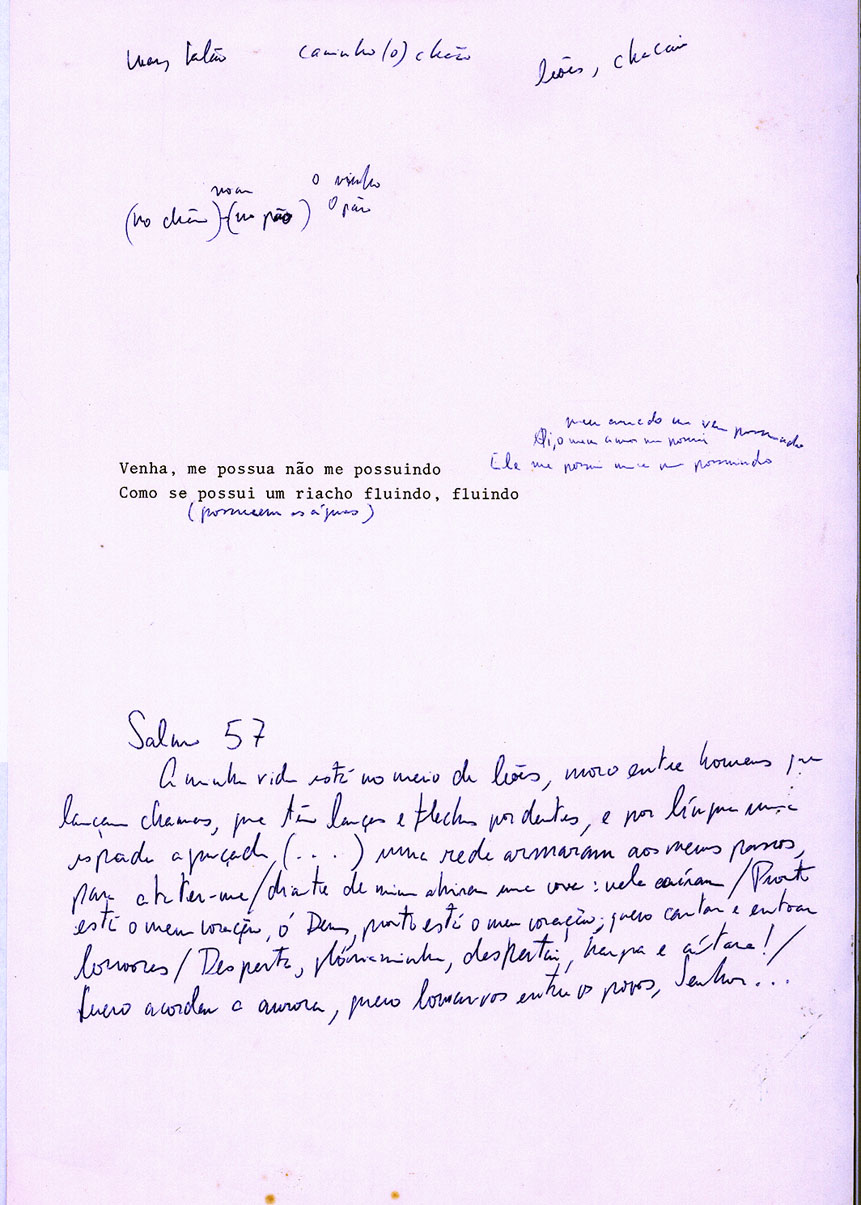 caminho (o) chão
leões, chacais
o vinho
(no chão) (no pão) O pão
meu amado me vem possuindo
Ai, o meu amor me possui
Venha, me possua não me possuindo
Ele me possui possuindo
Como se possui um riacho fluindo, fluindo
(possuem as águas)
Salmo 57
A minha vida está no meio de leões, moro entre homens que
lançam chamas, que têm lanças e flechas por dentes, e por língua uma
espada aguçada, (...) uma rede armaram aos meus passos,
para abater-me / diante de mim abriram uma cova: nela caíram / Pronto
está o meu coração, ó Deus, pronto está o meu coração; quero cantar e entoar
louvores / Desperta, glória minha, despertai, harpa e cítara! /
Quero acordar a aurora, quero louvar-vos entre os povos, Senhor...